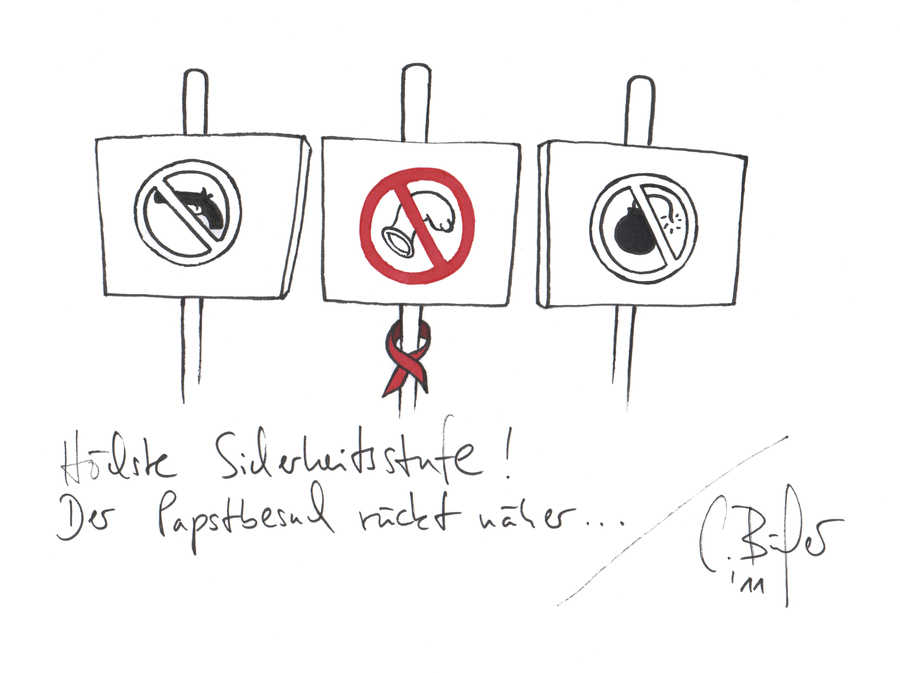 Höchste Sicherheitsstufe!
Der Papstbesuch rückt näher...
'11